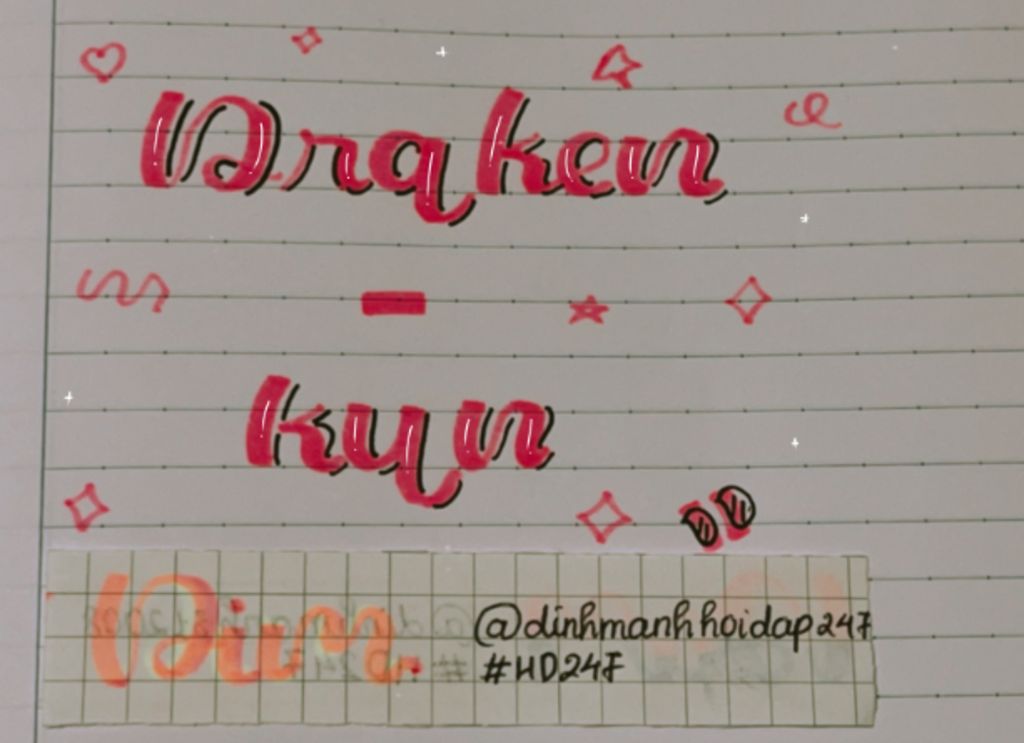 Draken
-
kyn
Din.
@dinhmanhhoidap247
#HD247